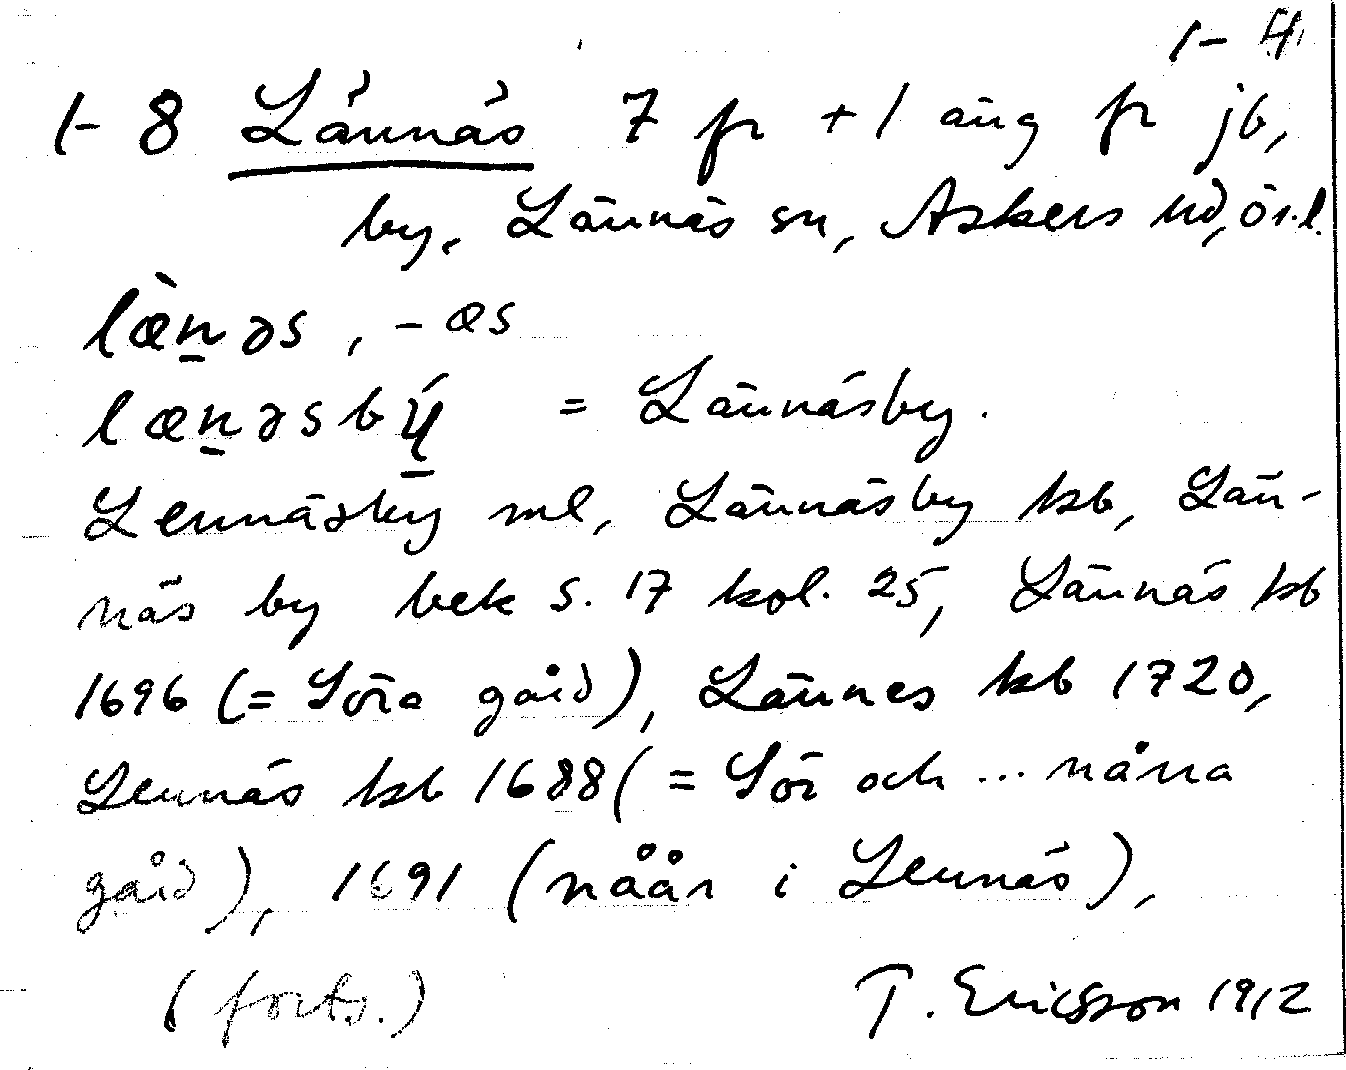 1-4
1-8 Lännäs 7 fr +1 äng fr jb,
by, Lännäs sn, Askers hd, ör.l.
læ̀n̠əs, -æs
læn̠əsbý̠ = Lännäsby.
Lennäsby ml, Lännäsby kb, Län-
näs by bek s. 17 kol. 25, Lännäs kb
1696 (= Söra gård), Lännes kb 1720,
Lennäs kb 1688 (= Sör och ... nårra
gård), 1691 (nåår i Lennäs),
(forts.) T. Ericsson 1912